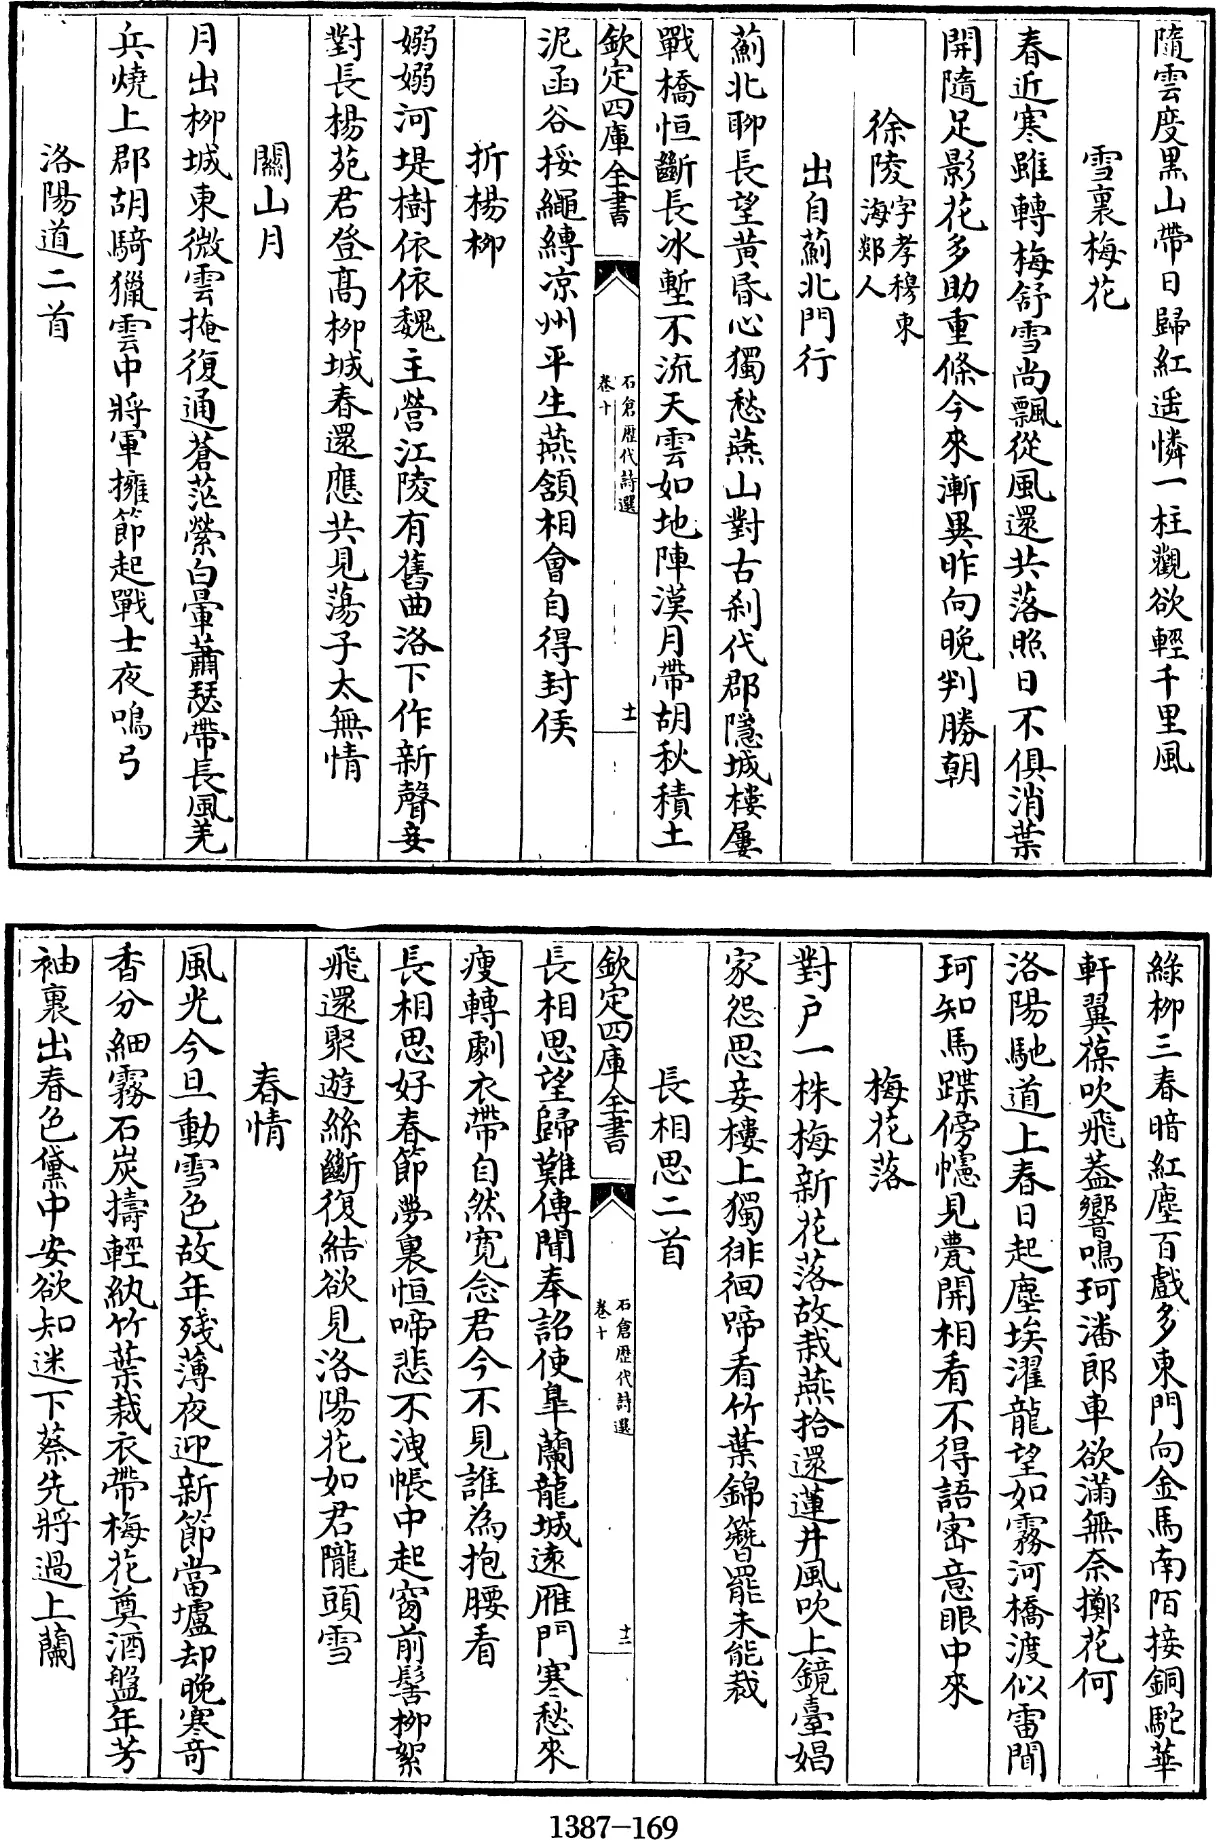 隨雲度黒山帶日歸紅遥憐一柱觀欲輕千里風
雪裏梅花
春近寒雖轉梅舒雪尚飄從風還共落照日不俱消葉
開隨足影花多助重條今來漸異昨向晚判勝朝
徐陵字孝穆東海郯人
出自薊北門行
薊北聊長望黄昏心獨愁燕山對古刹代郡隱城樓屢
戰橋恒斷長冰塹不流天雲如地陣漢月帶胡秋積土
欽定四庫全書
石倉歷代詩選
卷十
十一
泥函谷挼繩縛凉州平生燕頷相會自得封侯
折楊柳
嫋嫋河堤樹依依魏主營江陵有舊曲洛下作新聲妾
對長楊苑君登髙柳城春還應共見蕩子太無情
關山月
月出柳城東微雲掩復通蒼茫縈白暈蕭瑟帶長風羌
兵燒上郡胡騎獵雲中將軍擁節起戰士夜鳴弓
洛陽道二首
綠柳三春暗紅塵百戲多東門向金馬南陌接銅駝華
軒翼葆吹飛蓋響鳴珂潘郎車欲滿無奈擲花何
洛陽馳道上春日起塵埃濯龍望如霧河橋渡似雷聞
珂知馬蹀傍幰見甍開相看不得語宻意眼中來
梅花落
對户一株梅新花落故栽燕拾還蓮井風吹上鏡臺娼
家怨思妾樓上獨徘徊啼看竹葉錦簪罷未能裁
長相思二首
欽定四庫全書
石倉歷代詩選
卷十
十二
長相思望歸難傳聞奉詔使臯蘭龍城逺雁門寒愁來
瘦轉劇衣帶自然寛念君今不見誰為抱腰看
長相思好春節夢裏恒啼悲不洩帳中起窗前髻柳絮
飛還聚遊絲斷復結欲見洛陽花如君隴頭雪
春情
風光今旦動雪色故年殘薄夜迎新節當壚却晚寒奇
香分細霧石炭擣輕紈竹葉裁衣帶梅花奠酒盤年芳
袖裏出春色黛中安欲知迷下蔡先將過上蘭
1387-169